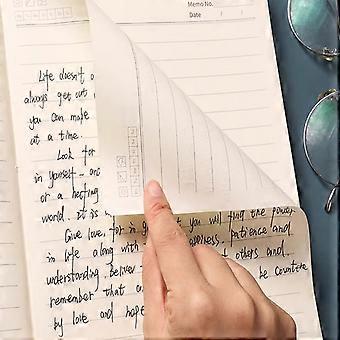 Memo No.
Date / /
Life doesn't a
always get out
you can make
at a time.
Look for
in yourself - and
or a
world. It is
Give love, for in g t you will find the power
in life along with happiness, patience and
understanding. Believe t others and
remember that an be countless
by love and hope